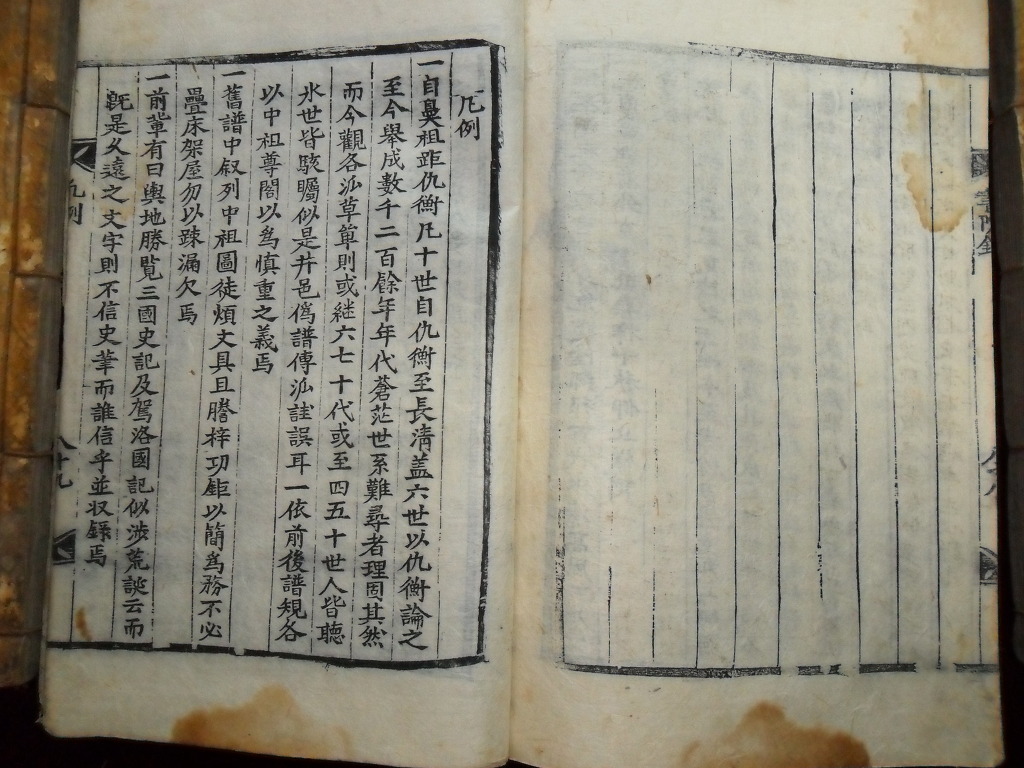 凡例
一自鼻祖距仇衡凡十世自仇衡至長淸盖六世以仇衡論之
至今擧成數千二百餘年年代蒼茫世系難尋者理固其然
而今觀各派草單則或継六七十代或至四五十世人皆聽
氷世皆駭矚似是井邑僞譜傳派詿誤耳一依前後譜規各
以中祖尊閣以爲愼重之義焉
一舊譜中叙列中祖圖徒煩文具且謄梓功鉅以簡爲務不必
疊床架屋勿以踈漏欠焉
一前輩有曰輿地勝覽三國史記及駕洛國記似涉荒談云而
旣是久遠之文字則不信史筆而誰信乎並収錄焉
凡例
八十九